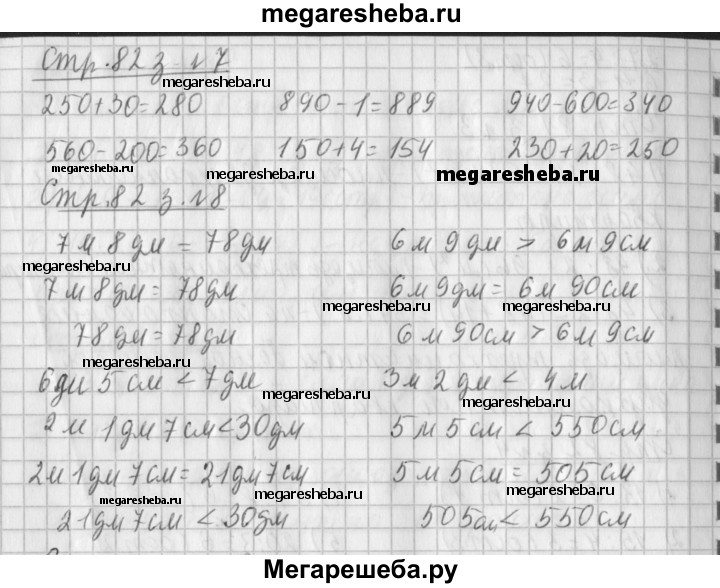 megaresheba.ru
Стр.82 з.№7
megaresheba.ru
250+30=280 890-1=889 940-600=340
560-200=360 150+4=154 230+20=250
megaresheba.ru megaresheba.ru megaresheba.ru
Стр.82 з.№8
7м 8дм = 78дм 6м 9дм > 6м 9см
megaresheba.ru megaresheba.ru
7м 8дм = 78дм 6м 9дм = 6м 90см
megaresheba.ru megaresheba.ru
78дм = 78дм 6м 90см > 6м 9см
megaresheba.ru
6дм 5см < 7дм 3м 2дм < 4м
megaresheba.ru megaresheba.ru
2м 1дм 7см < 30дм 5м 5см < 550см
2м 1дм 7см = 21дм 7см 5м 5см = 505см
megaresheba.ru megaresheba.ru megaresheba.ru
21дм 7см < 30дм 505см < 550см
Мегарешеба.ру